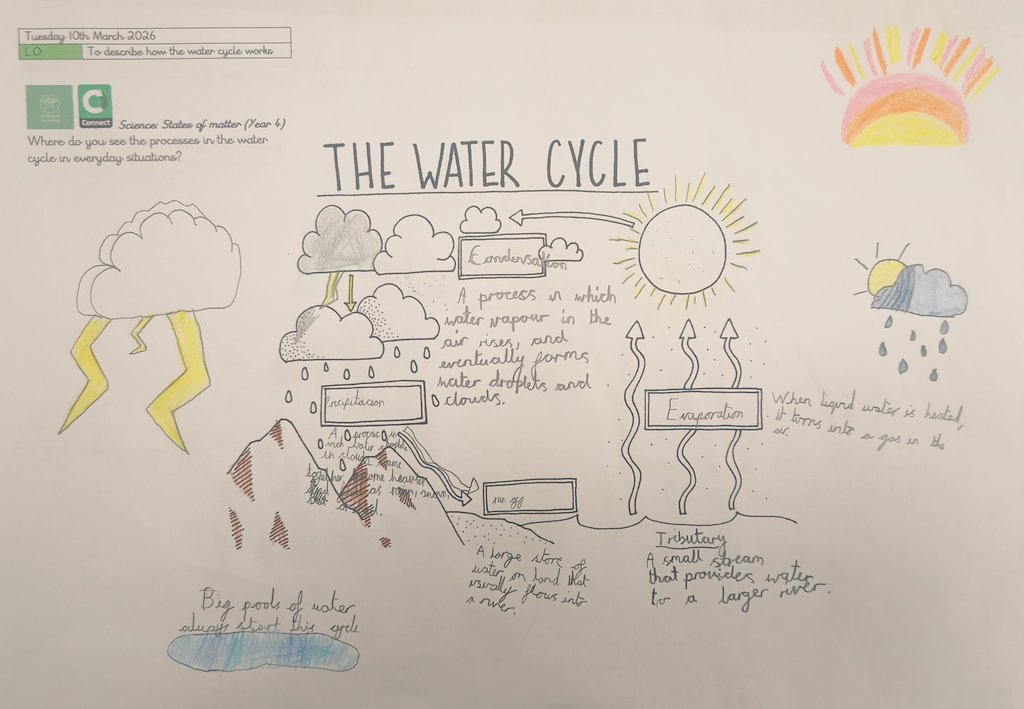 Tuesday 10th March 2026
LO: To describe how the water cycle works
Connect
Science: States of matter (Year 4)
Where do you see the processes in the water
cycle in everyday situations?
THE WATER CYCLE
Condensation
A process in which
water vapour in the
air rises, and
eventually forms
water droplets and
clouds.
Precipitacion
A process in
wich water
in clouds
together become heavier
as rain, snow,
Evaporation
When liquid water is heated,
it turns into a gas in the
air.
run off
A large store of
water on land that
usually flows into
a river.
Tributary
A small stream
that provides water
to a larger river.
Big pools of water
always start this cycle.